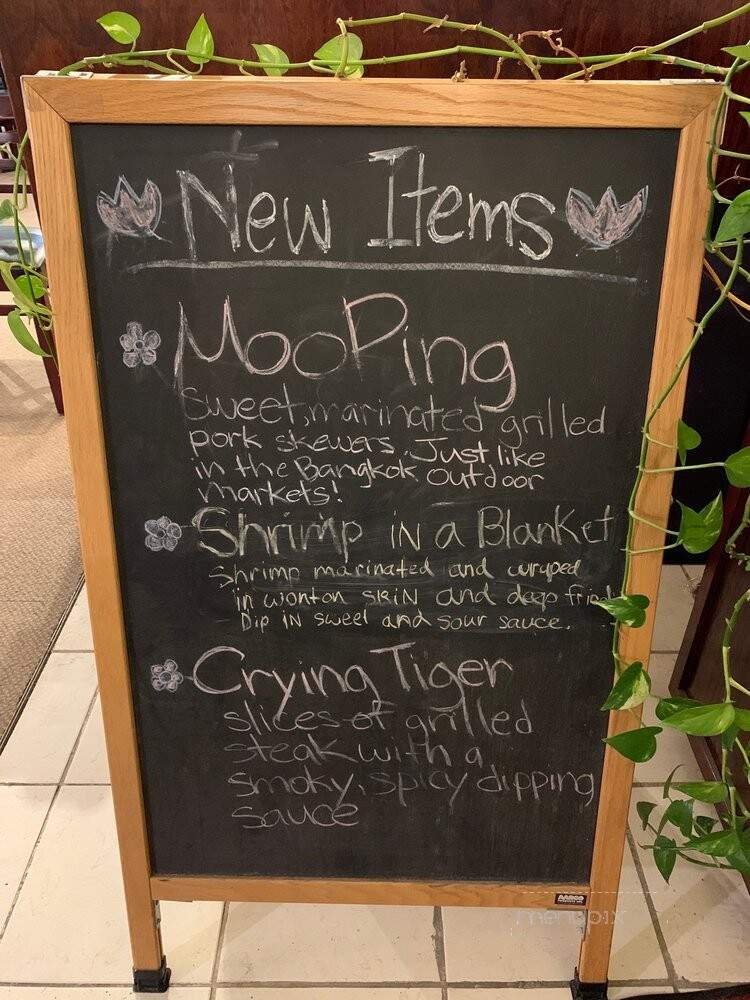 New Items
MooPing
Sweet, marinated grilled
pork skewers. Just like
in the Bangkok outdoor
markets!
Shrimp in a Blanket
Shrimp marinated and wraped
in wonton skin and deep fried
Dip in sweet and sour sauce.
Crying Tiger
slices of grilled
steak with a
smoky, spicy dipping
sauce
AARCO
menupix